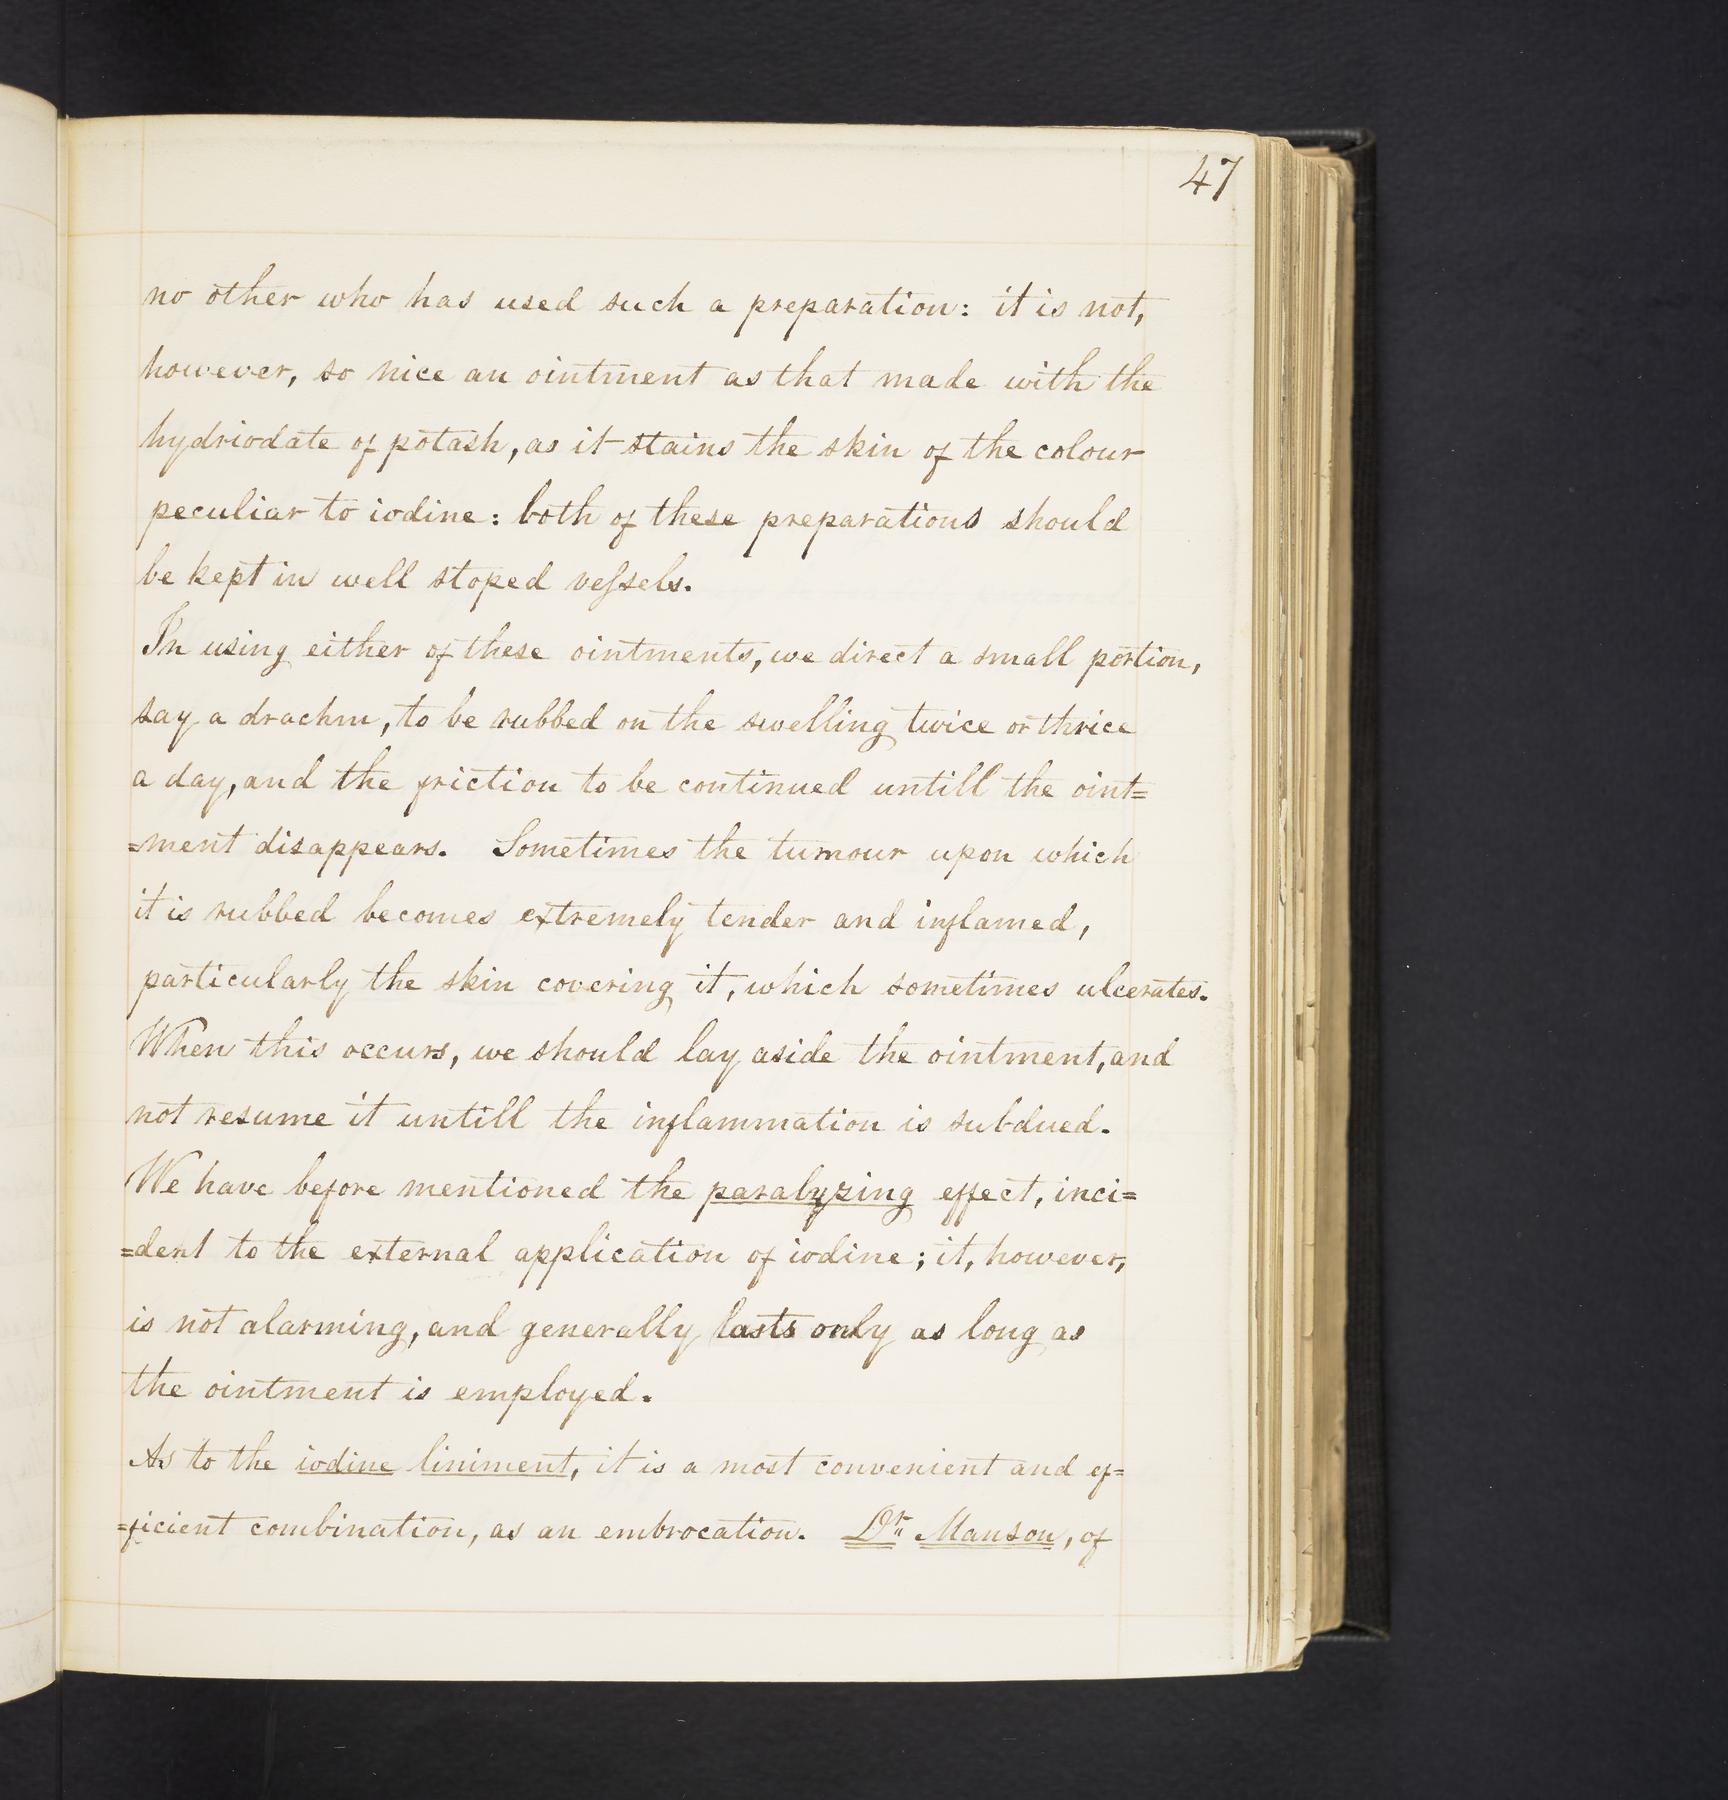 47
no other who has used such a preparation: it is not,
however, so nice an ointment as that made with the
hydriodate of potash, as it stains the skin of the colour
peculiar to iodine: both of these preparations should
be kept in well stoped veſsels.
In using either of these ointments, we direct a small portion,
say a drachm, to be rubbed on the swelling twice or thrice
a day, and the friction to be continued untill the oint=
=ment disappears. Sometimes the tumour upon which
it is rubbed becomes extremely tender and inflamed,
particularly the skin covering it, which sometimes ulcerates.
When this occurs, we should lay aside the ointment, and
not resume it untill the inflammation is subdued.
We have before mentioned the paralyzing effect, inci=
=dent to the external application of iodine; it, however,
is not alarming, and generally lasts only as long as
the ointment is employed.
As to the iodine liniment, it is a most convenient and ef=
=ficient combination, as an embrocation. Dr Manson, of